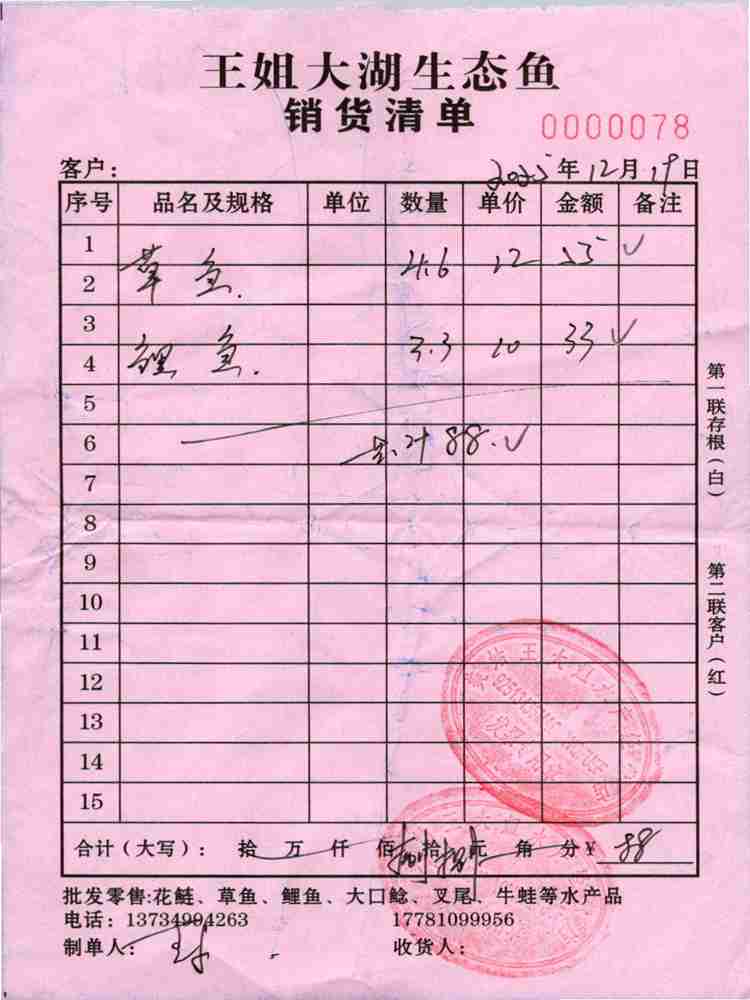 王姐大湖生态鱼
销货清单
0000078
客户： 2025年12月19日
序号 品名及规格 单位 数量 单价 金额 备注
1
草鱼. 4.6 12 55 √
2
3
鲤鱼. 3.3 10 33 √
4
5
6 总计 88. √
7
8
9
10
11
12
13
14
15
合计（大写）： 拾 万 仟 佰 捌拾捌元 角 分￥ 88
批发零售:花鲢、草鱼、鲤鱼、大口鲶、叉尾、牛蛙等水产品
电话：13734994263 17781099956
制单人： 收货人：
第一联存根（白）
第二联客户（红）